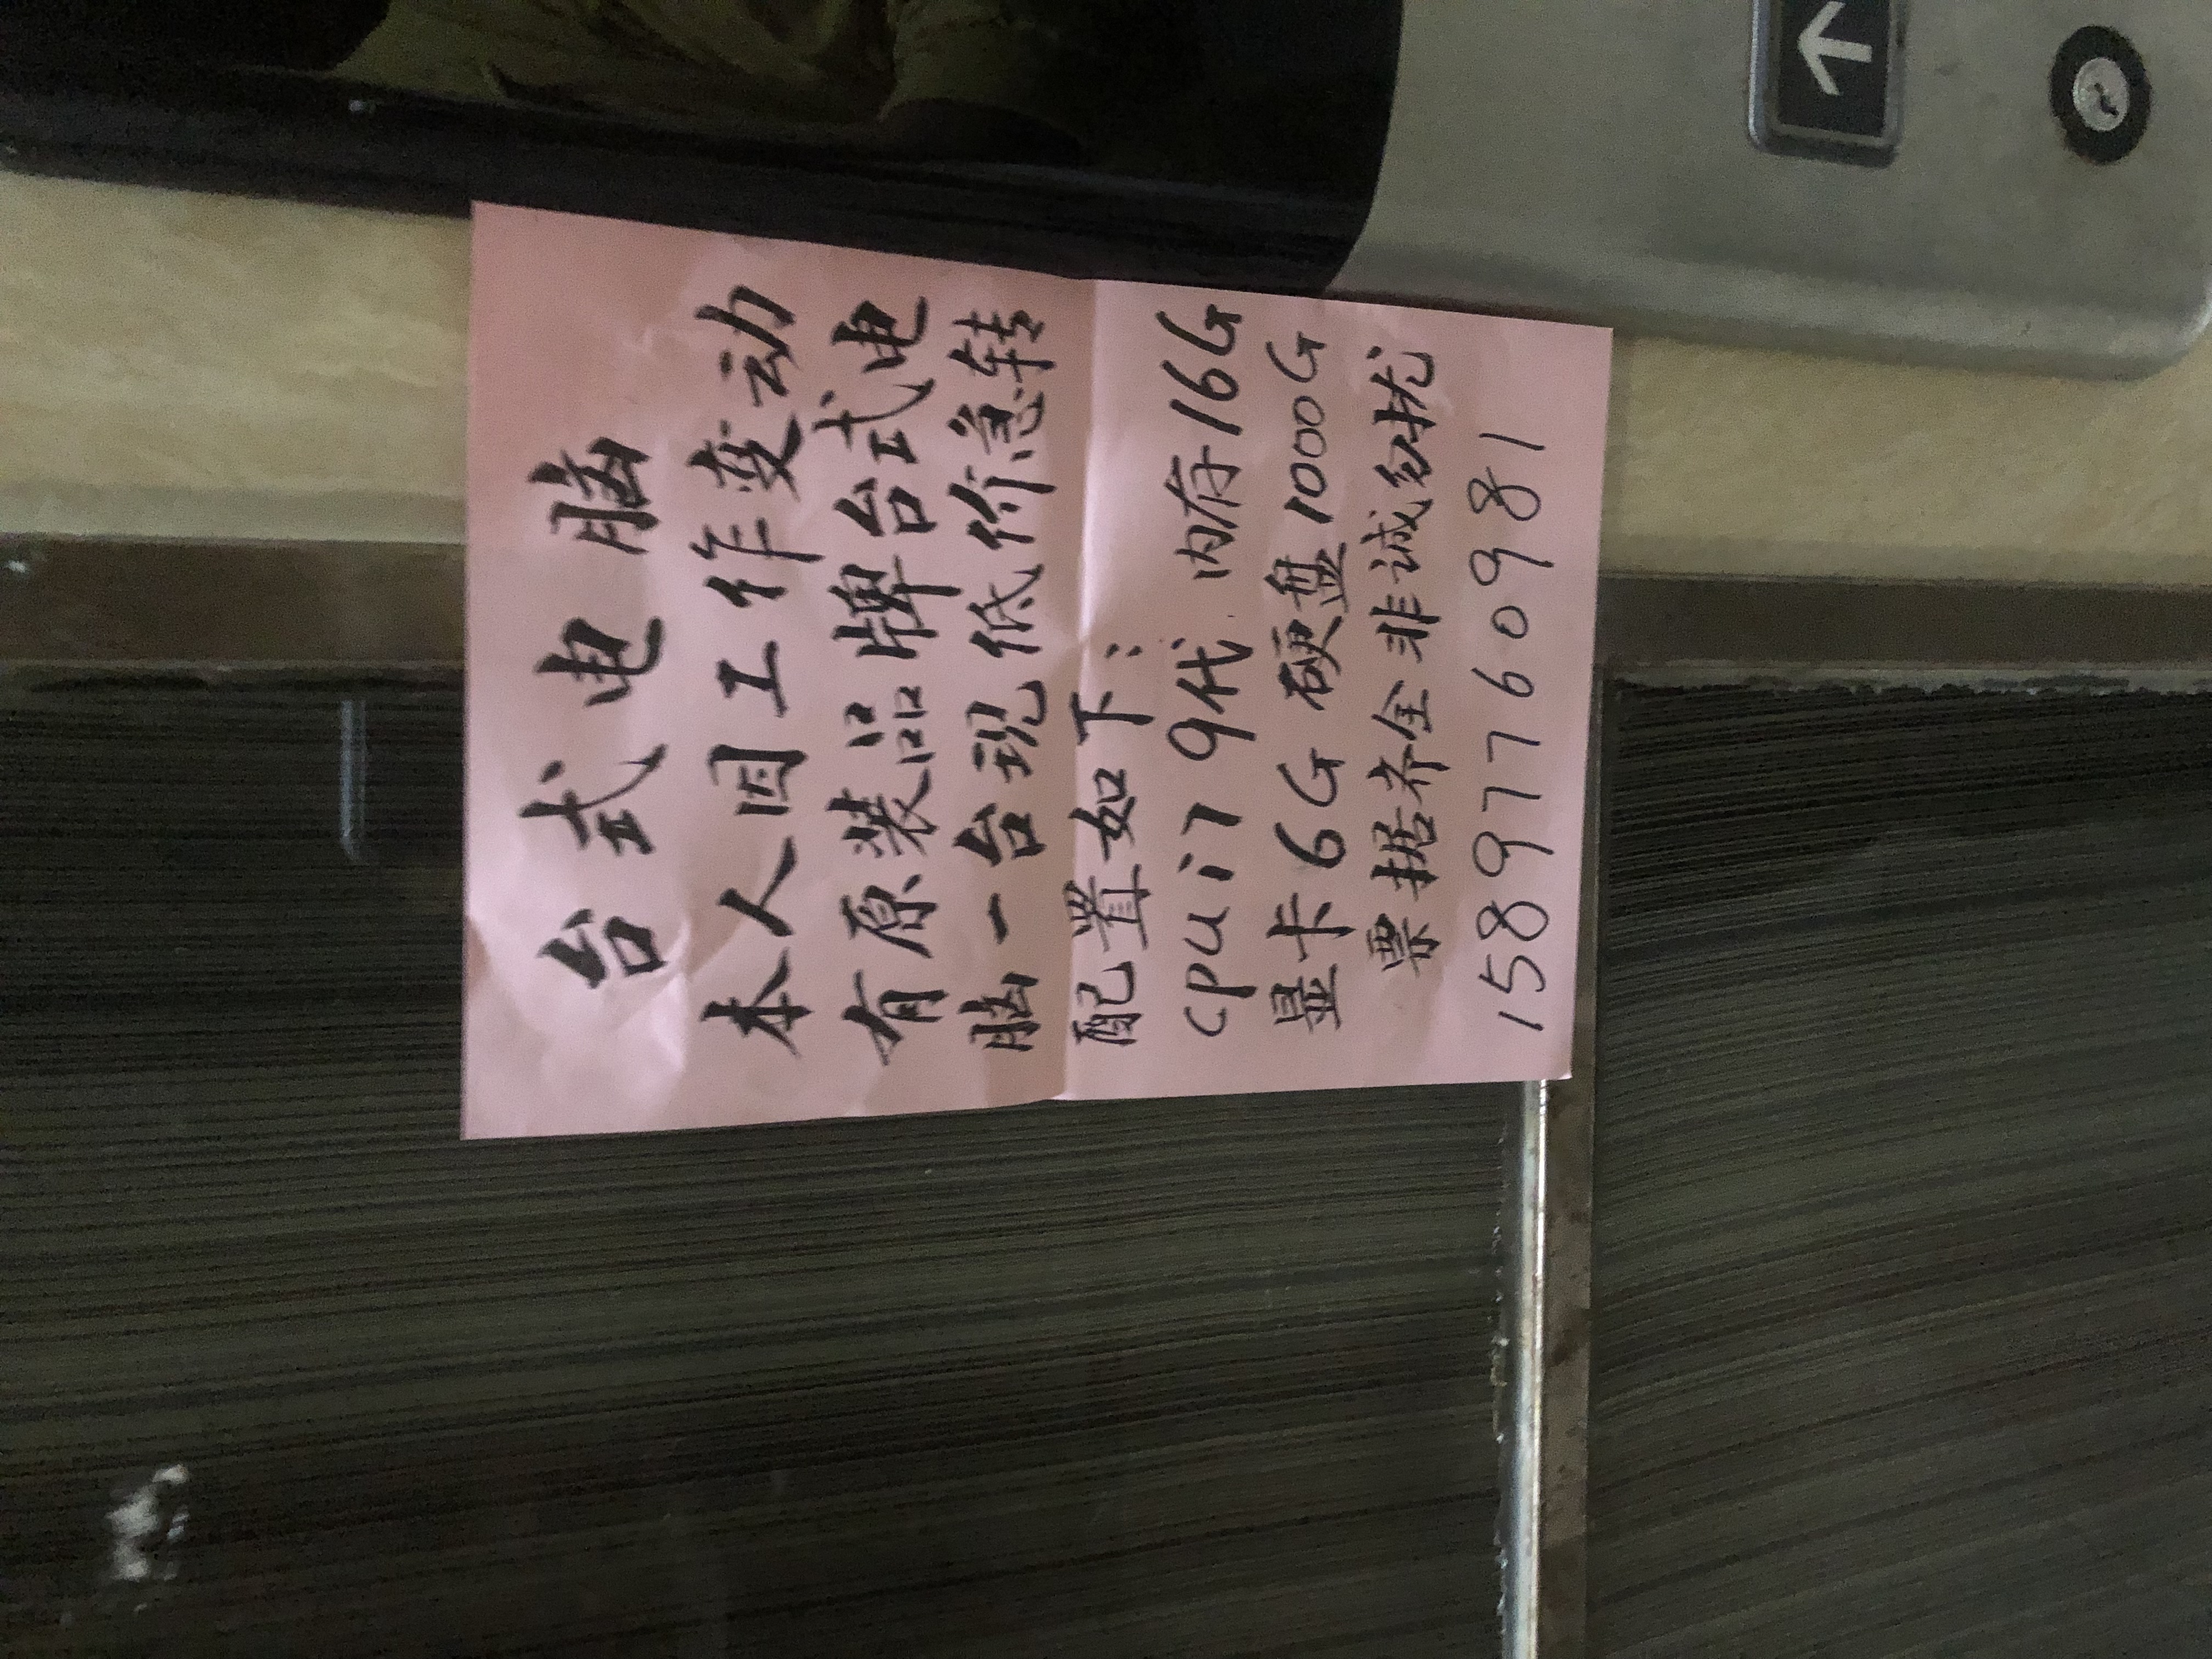 台式电脑
本人因工作变动
有原装品牌台式电
脑一台现低价急转
配置如下:
cpu i7 9代 内存16G
显卡6G 硬盘1000G
票据齐全 非诚勿扰
15897760981